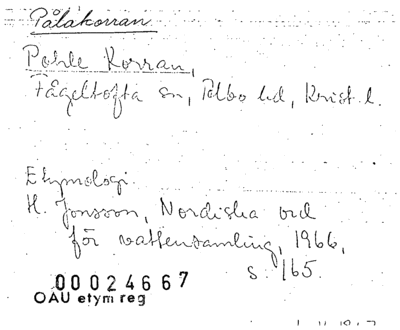 Pålakorran
Pohle Korran,
Fågeltofta sn, Albo hd, Krist. l.
Etymologi.
H. Jonsson, Nordiska ord
för vattensamling, 1966,
s. 165.
00024667
OAU etym reg